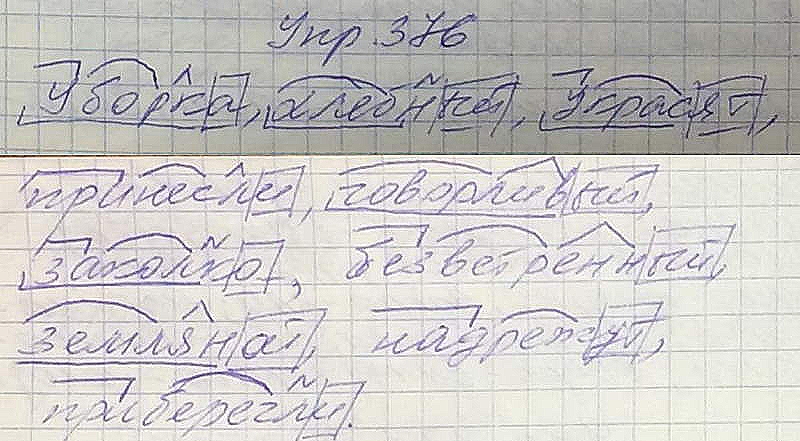 Упр 376
Уборка, хлебный, Украсят,
принесли, говорливый,
заколка, безветренный,
земляной, надрежут,
приберегли.